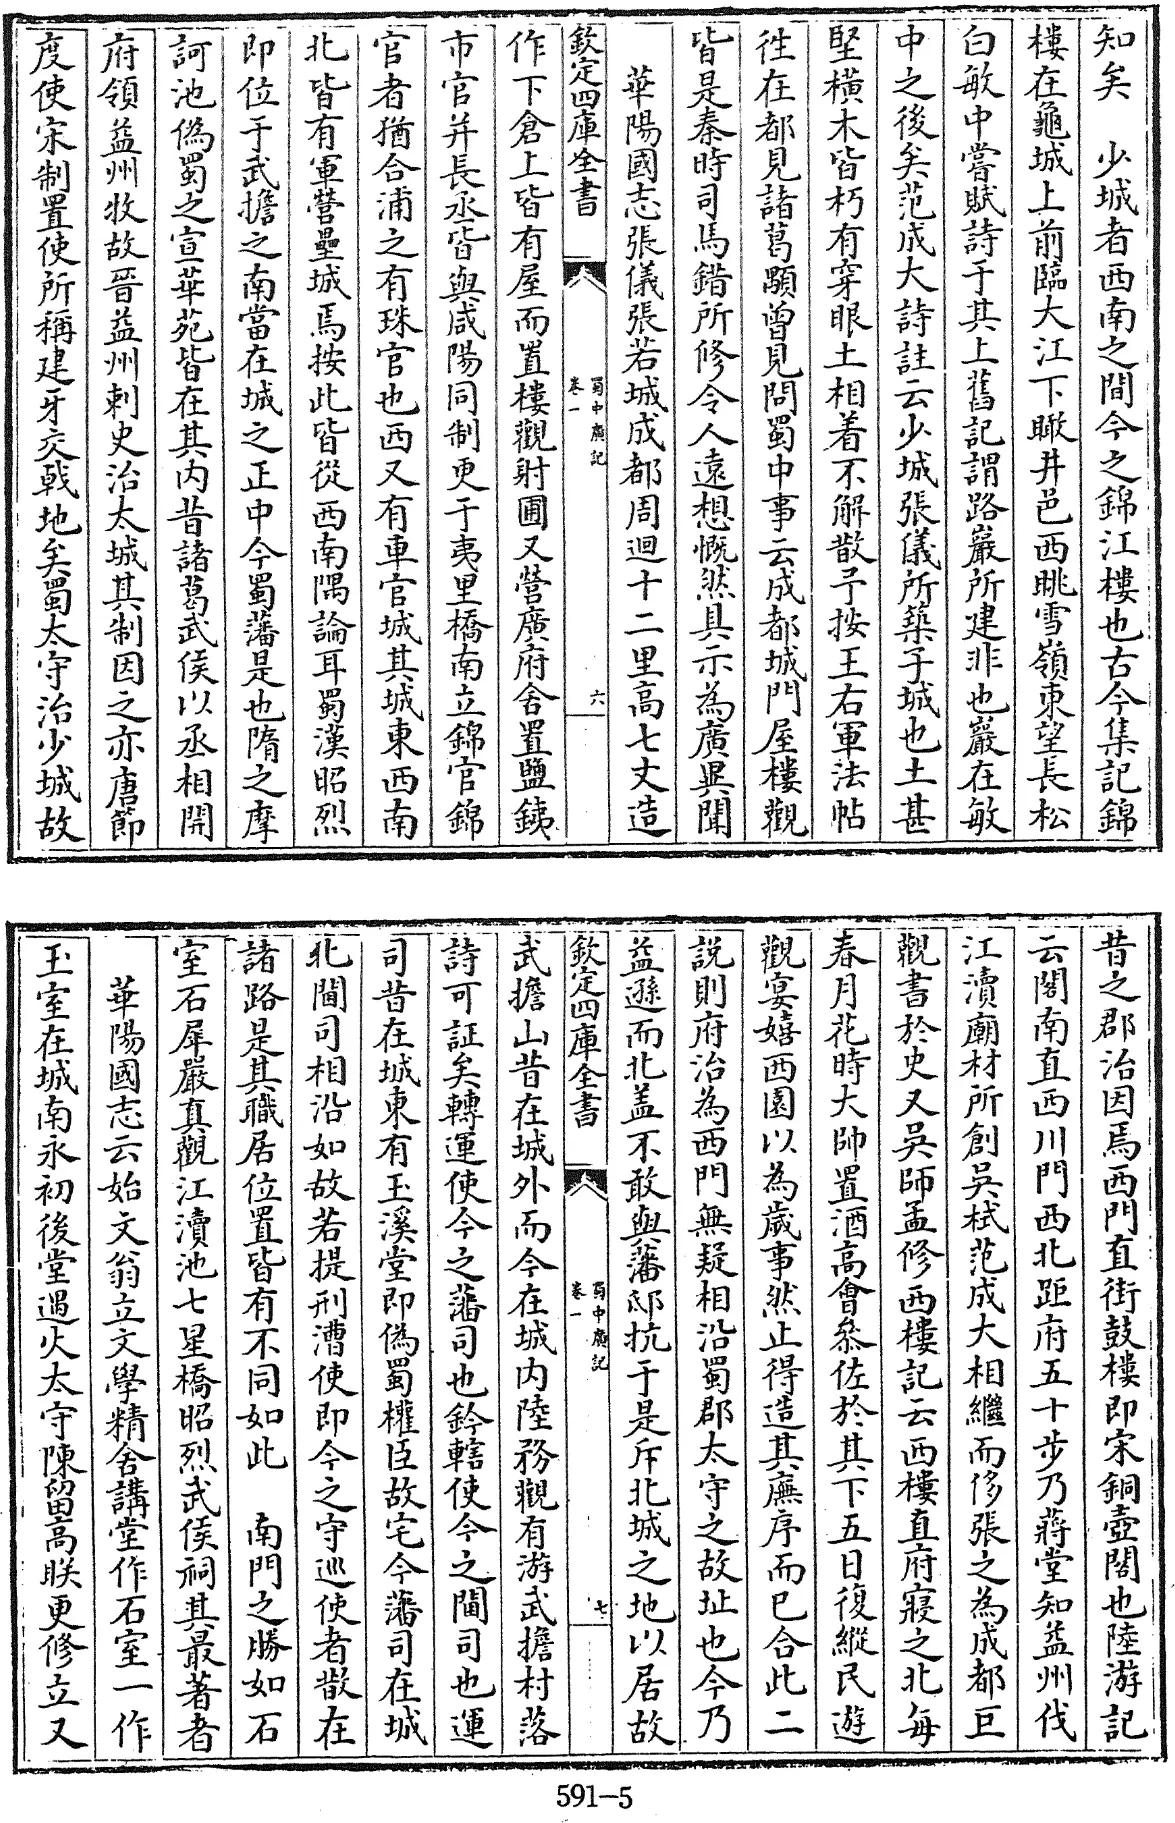 知矣　少城者西南之間今之錦江樓也古今集記錦
樓在龜城上前臨大江下瞰井邑西眺雪嶺東望長松
白敏中嘗賦詩于其上舊記謂路巖所建非也巖在敏
中之後矣范成大詩註云少城張儀所築子城也土甚
堅橫木皆朽有穿眼土相着不解散予按王右軍法帖
徃在都見諸葛顒曽見問蜀中事云成都城門屋樓觀
皆是秦時司馬錯所修令人遠想慨然具示為廣異聞
華陽國志張儀張若城成都周迴十二里高七丈造
欽定四庫全書
蜀中廣記
卷一
六
作下倉上皆有屋而置樓觀射圃又營廣府舍置鹽鐵
市官并長丞皆與咸陽同制更于夷里橋南立錦官錦
官者猶合浦之有珠官也西又有車官城其城東西南
北皆有軍營壘城焉按此皆從西南隅論耳蜀漢昭烈
即位于武擔之南當在城之正中今蜀藩是也隋之摩
訶池偽蜀之宣華苑皆在其内昔諸葛武侯以丞相開
府領益州牧故晉益州刺史治太城其制因之亦唐節
度使宋制置使所稱建牙交戟地矣蜀太守治少城故
昔之郡治因焉西門直街鼓樓即宋銅壺閣也陸游記
云閣南直西川門西北距府五十步乃蔣堂知益州伐
江瀆廟材所創吳栻范成大相繼而侈張之為成都巨
觀書於史又吳師孟修西樓記云西樓直府寢之北每
春月花時大帥置酒高會叅佐於其下五日復縱民遊
觀宴嬉西園以為歲事然止得造其廡序而巳合此二
説則府治為西門無疑相沿蜀郡太守之故址也今乃
益遜而北盖不敢與藩邸抗于是斥北城之地以居故
欽定四庫全書
蜀中廣記
卷一
七
武擔山昔在城外而今在城内陸務觀有游武擔村落
詩可証矣轉運使今之藩司也鈐轄使今之閫司也運
司昔在城東有玉溪堂即偽蜀權臣故宅今藩司在城
北閫司相沿如故若提刑漕使即今之守巡使者散在
諸路是其職居位置皆有不同如此　南門之勝如石
室石犀嚴真觀江瀆池七星橋昭烈武侯祠其最著者
華陽國志云始文翁立文學精舍講堂作石室一作
玉室在城南永初後堂遇火太守陳留高眹更修立又
591-5